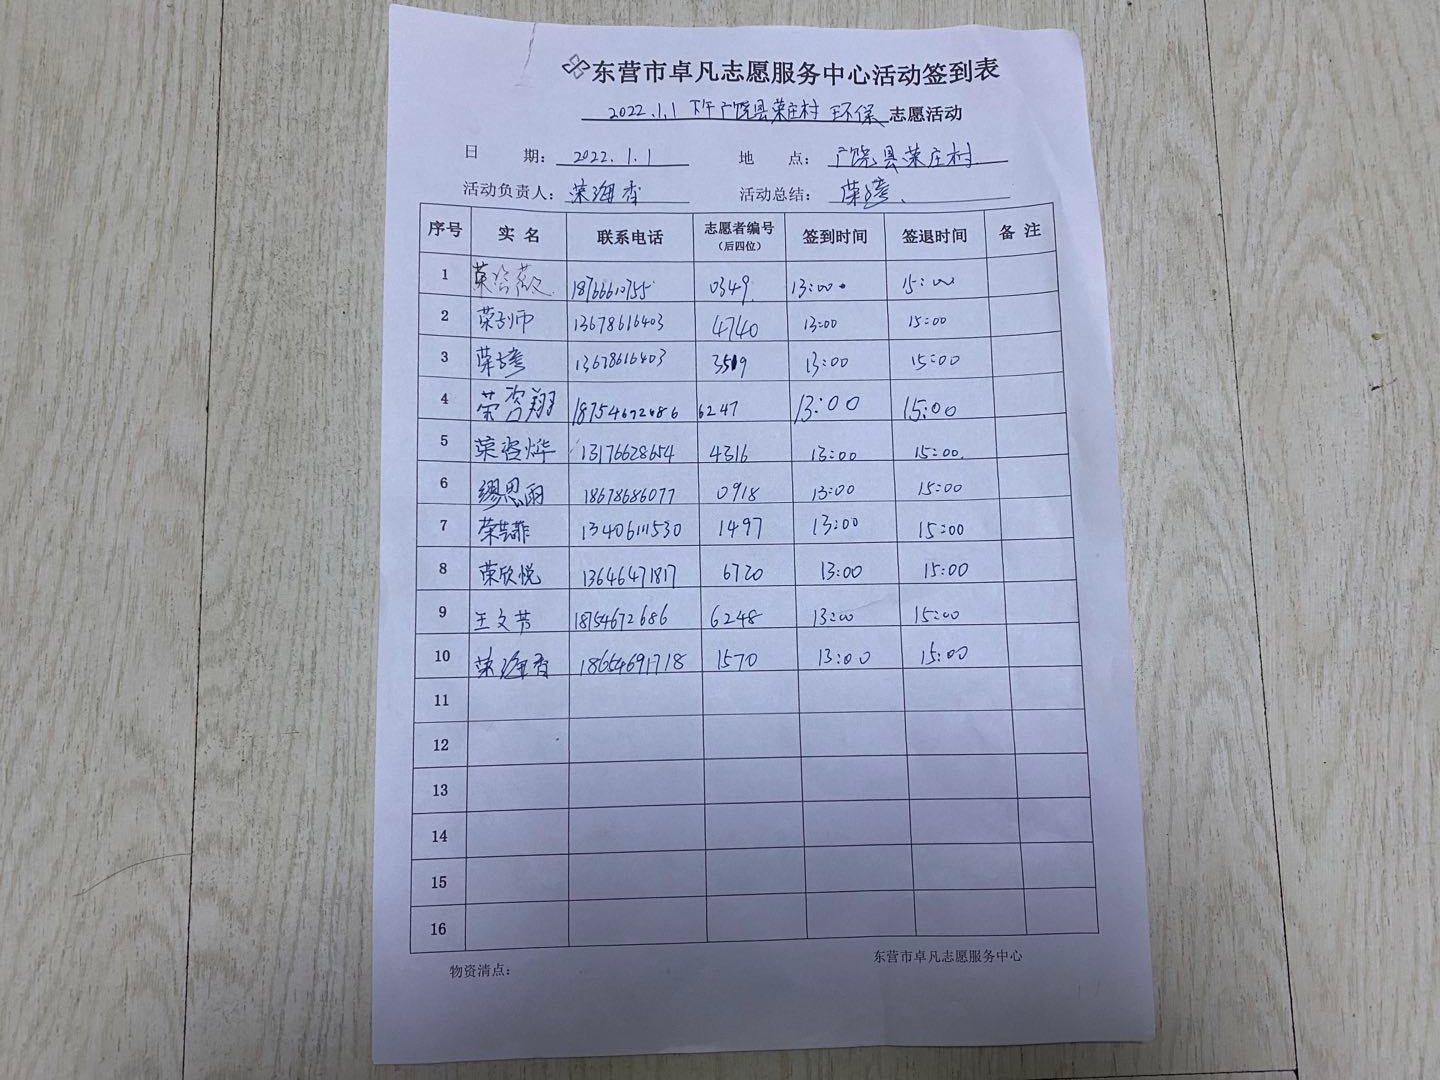 东营市卓凡志愿服务中心活动签到表
2022.1.1 下午广饶县荣庄村 环保 志愿活动
日 期： 2022.1.1 地 点： 广饶县荣庄村
活动负责人： 荣海香 活动总结： 荣
序号 实 名 联系电话 志愿者编号（后四位） 签到时间 签退时间 备 注
1 荣 薇 18766610755 0349 13:00 15:00
2 荣 师 13678616403 4740 13:00 15:00
3 荣 13678616403 3519 13:00 15:00
4 荣咨翔 18754672686 6247 13:00 15:00
5 荣咨烨 13176628654 4316 13:00 15:00
6 缪思雨 18678686077 0918 13:00 15:00
7 荣芸菲 13406111530 1497 13:00 15:00
8 荣欣悦 13646471817 6720 13:00 15:00
9 王文芳 18754672686 6248 13:00 15:00
10 荣海香 18654691718 1570 13:00 15:00
11
12
13
14
15
16
物资清点： 东营市卓凡志愿服务中心